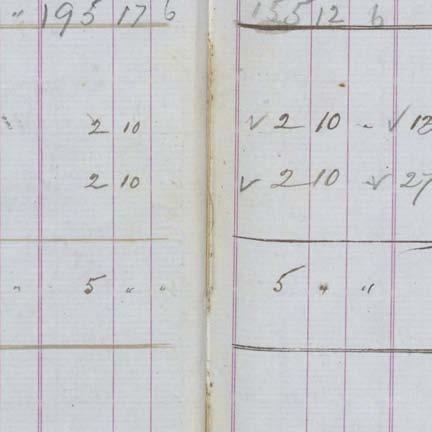 " 195 17 6 155 12 6
2 10 ✓ 2 10 - ✓ 12
2 10 ✓ 2 10 ✓ 27
" 5 " " 5 " "